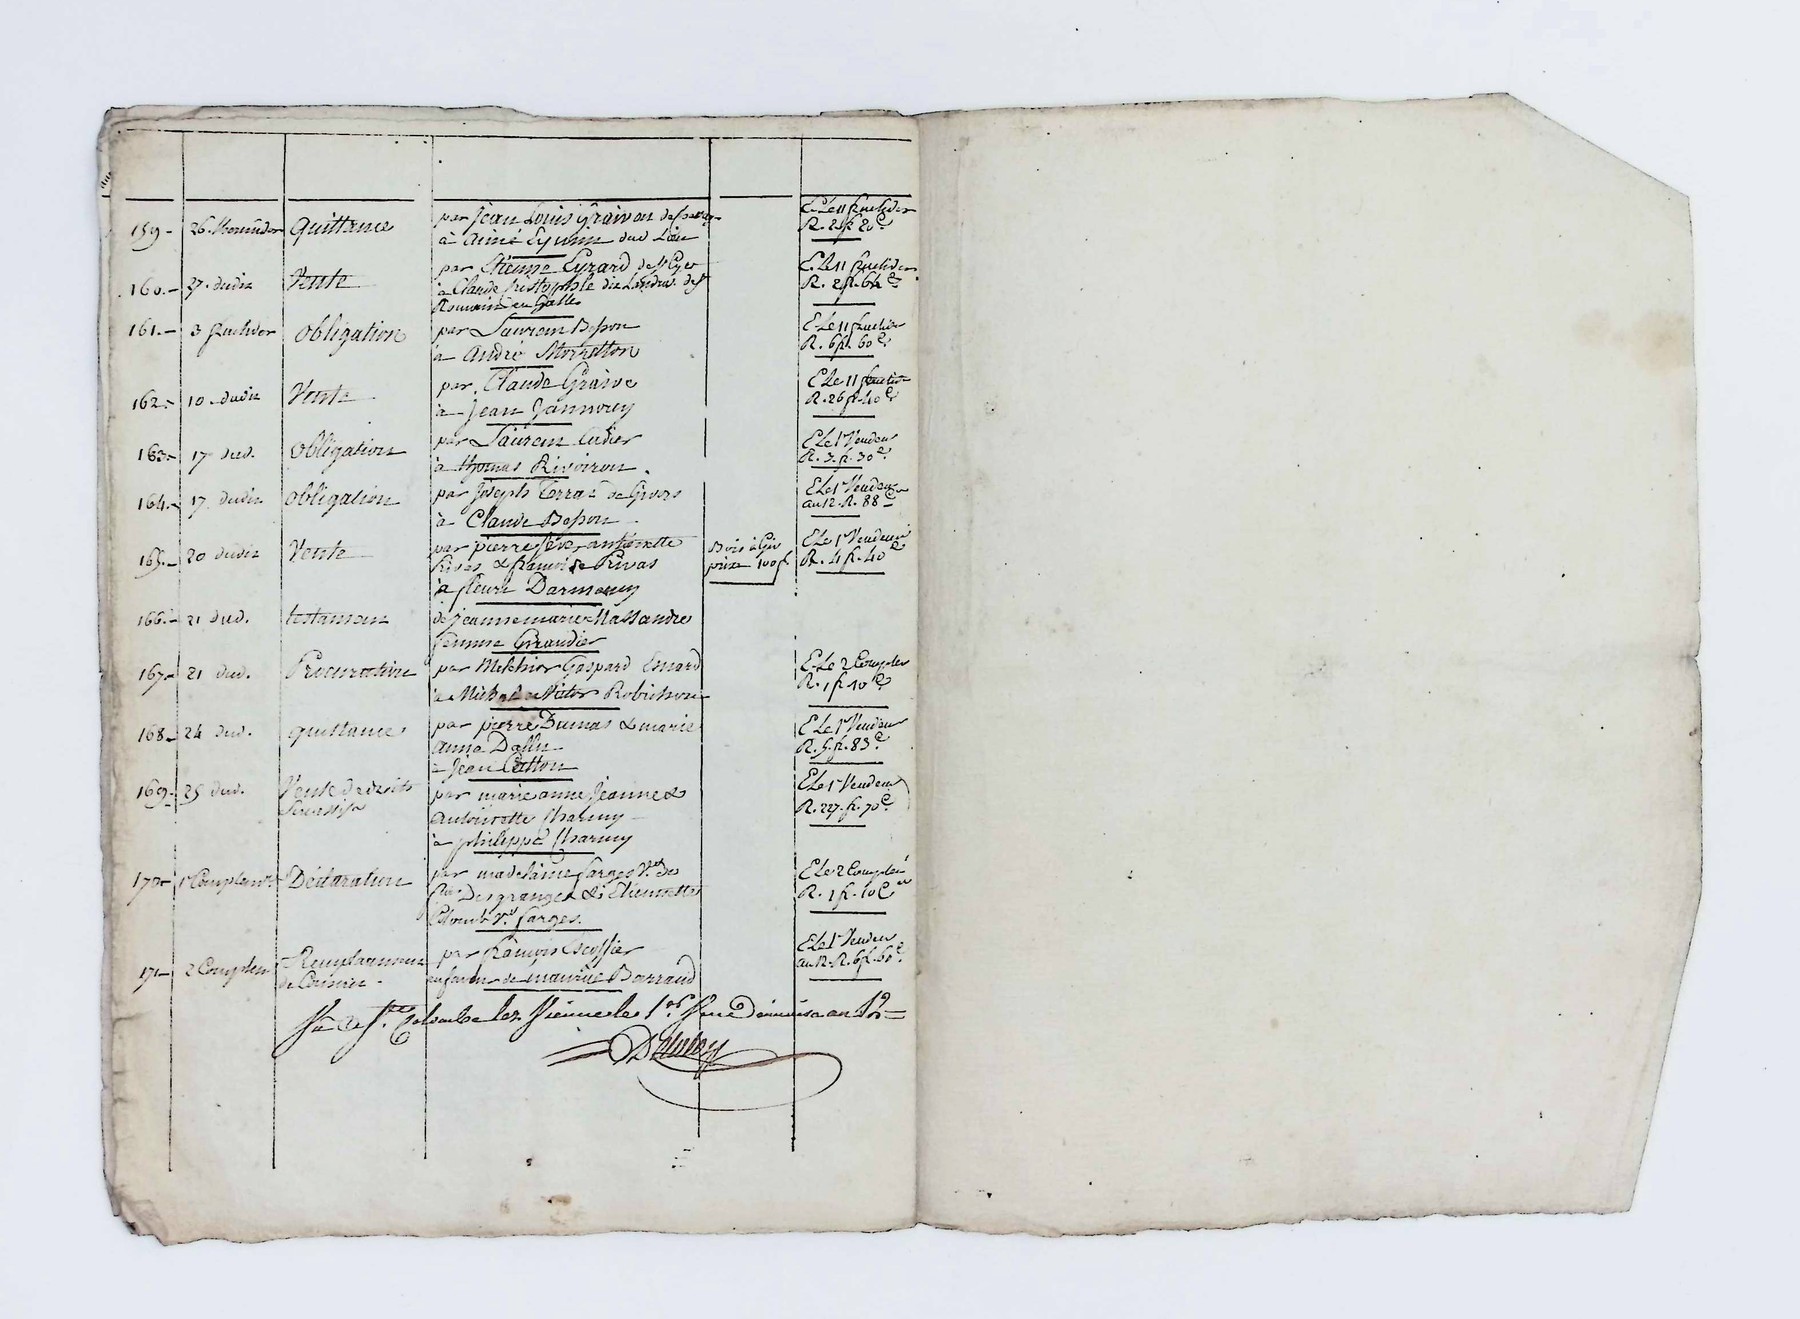 159 - 26. Quittance par Jean Louis Graivon
à Aimé dud. Lieu
E. Le 11 fructidor
R. 2 f. 20 c.
160. - 27. dudit Vente par Etienne Eyrard de St Cyr
à Claude Cristophle dit Landru. de St
Romain en Galle
E. Le 11 fructidor
R. 2 f. 64 c.
161. - 3 fructidor Obligation par Laurent Besson
à André
E Le 11 fructidor
R. 6 f. 60 c.
162. - 10. dudit Vente par Claude Graive
à Jean Jannorey
E Le 11 fructidor
R. 26 f. 40 c.
163. - 17 dud. Obligation par Laurent Cudier
à thomas Rivoiron.
E Le 1er Vendem
R. 3. f. 30 c.
164. - 17 dudit obligation par Joseph Terras de Givors
à Claude Besson
E Le 1er Vendem
an 12. R. 88 c
165. - 20 dudit Vente par pierre antoinette
Rivas & francoise Rivas
à fleuri Darmancy
prix 100 f
E Le 1er Vendem
R. 4 f. 40 c
166. - 21 dud. testament de jeanne marie Massandre
femme Giraudier
167 - 21 dud. Procuration par Melchior Gaspard Emard
à Michel Victor Robichon
E. Le 2 Complem
R. 1 f 10 c.
168 - 24 dud. quittance par pierre Dumas & marie
anna Dallin
à Jean Catton
E Le 1er Vendem
R. 5. f. 83 c.
169 - 25 dud. Vente de droits par marie anne Jeanne &
Antoinette Charmy
à philippe Charmy
E Le 1er Vendem
R. 227. f. 70 c.
170 - 1 Complem Déclaration par madelaine farges Ve de
Desgranges & Etiennette
Ve farges.
E Le 2 Complem
R. 1 f. 10 c
171 - 2 Complem Remplacement par françois Escoffier
de Conscrit. en faveur de maurice Barraud
E Le 1er Vendem
an 12. R. 6 f. 60 c.
Ste Colombe lez Vienne le 1er Vendemiaire an 12 =